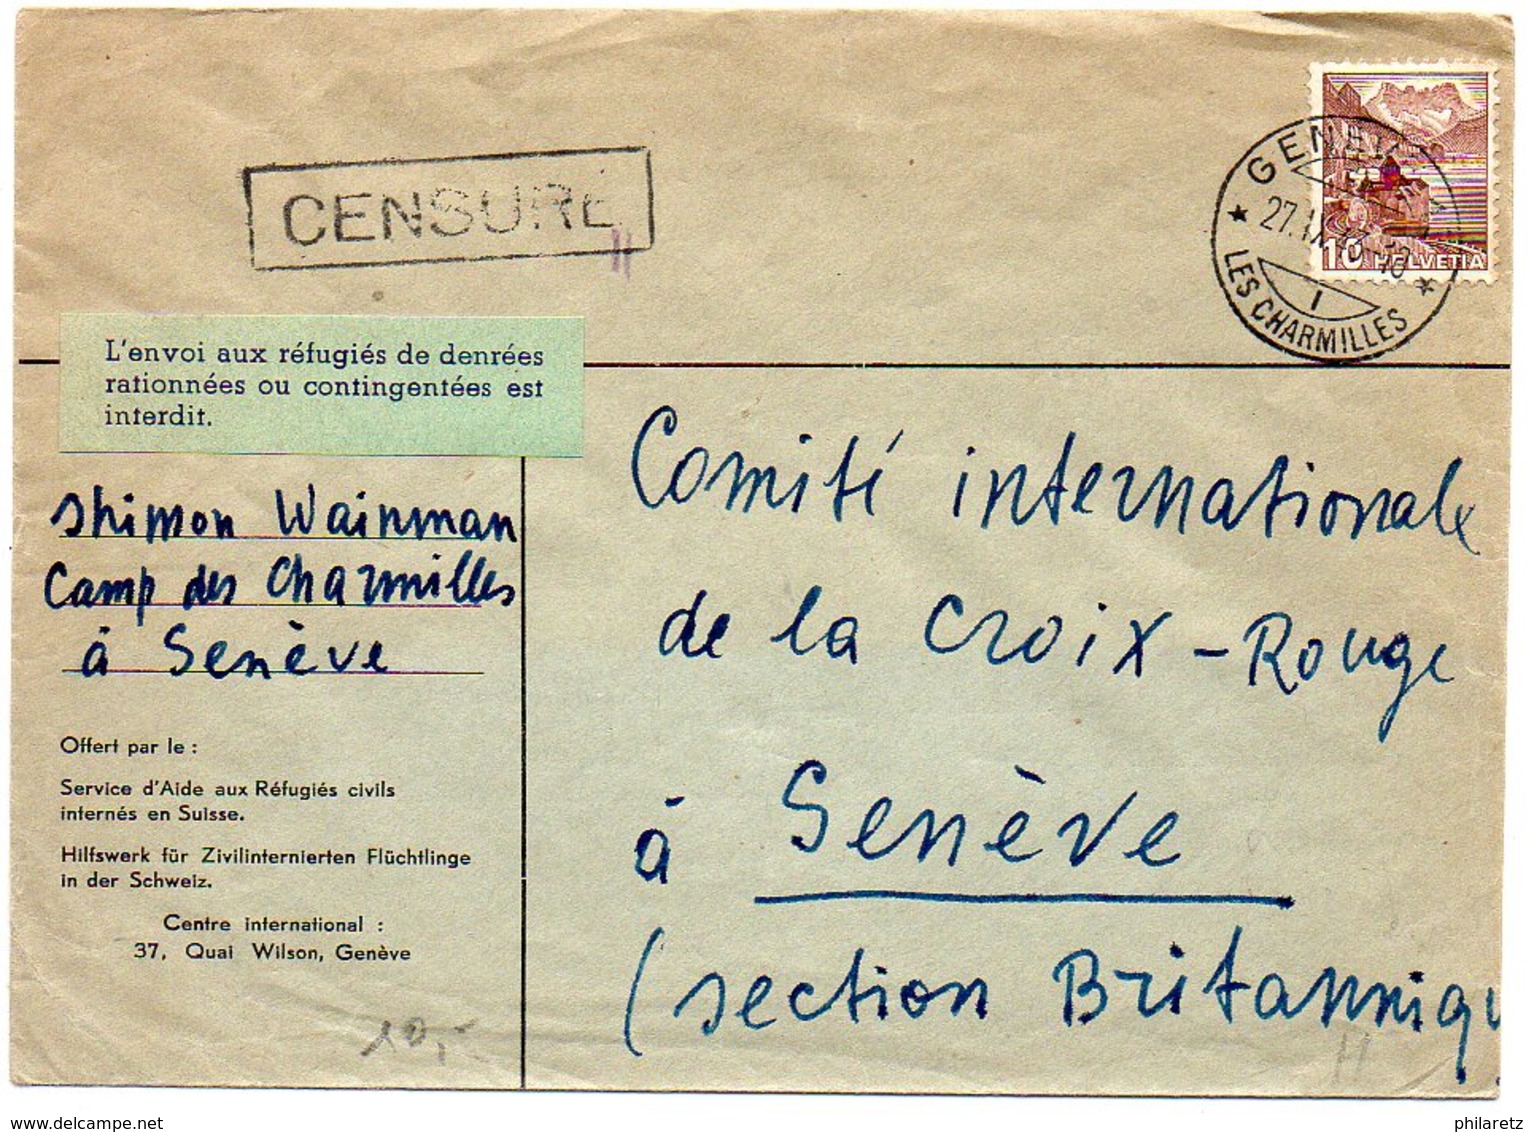 CENSURE
GENÈVE
27.IX.43-18
I
LES CHARMILLES
10 HELVETIA
L'envoi aux réfugiés de denrées
rationnées ou contingentées est
interdit.
Shimon Wainman
Camp des Charmilles
à Genève
Comité internationale
de la Croix-Rouge
à Genève
(section Britanniqu
Offert par le :
Service d'Aide aux Réfugiés civils
internés en Suisse.
Hilfswerk für Zivilinternierten Flüchtlinge
in der Schweiz.
Centre international :
37, Quai Wilson, Genève
10,-
H
www.delcampe.net
philaretz